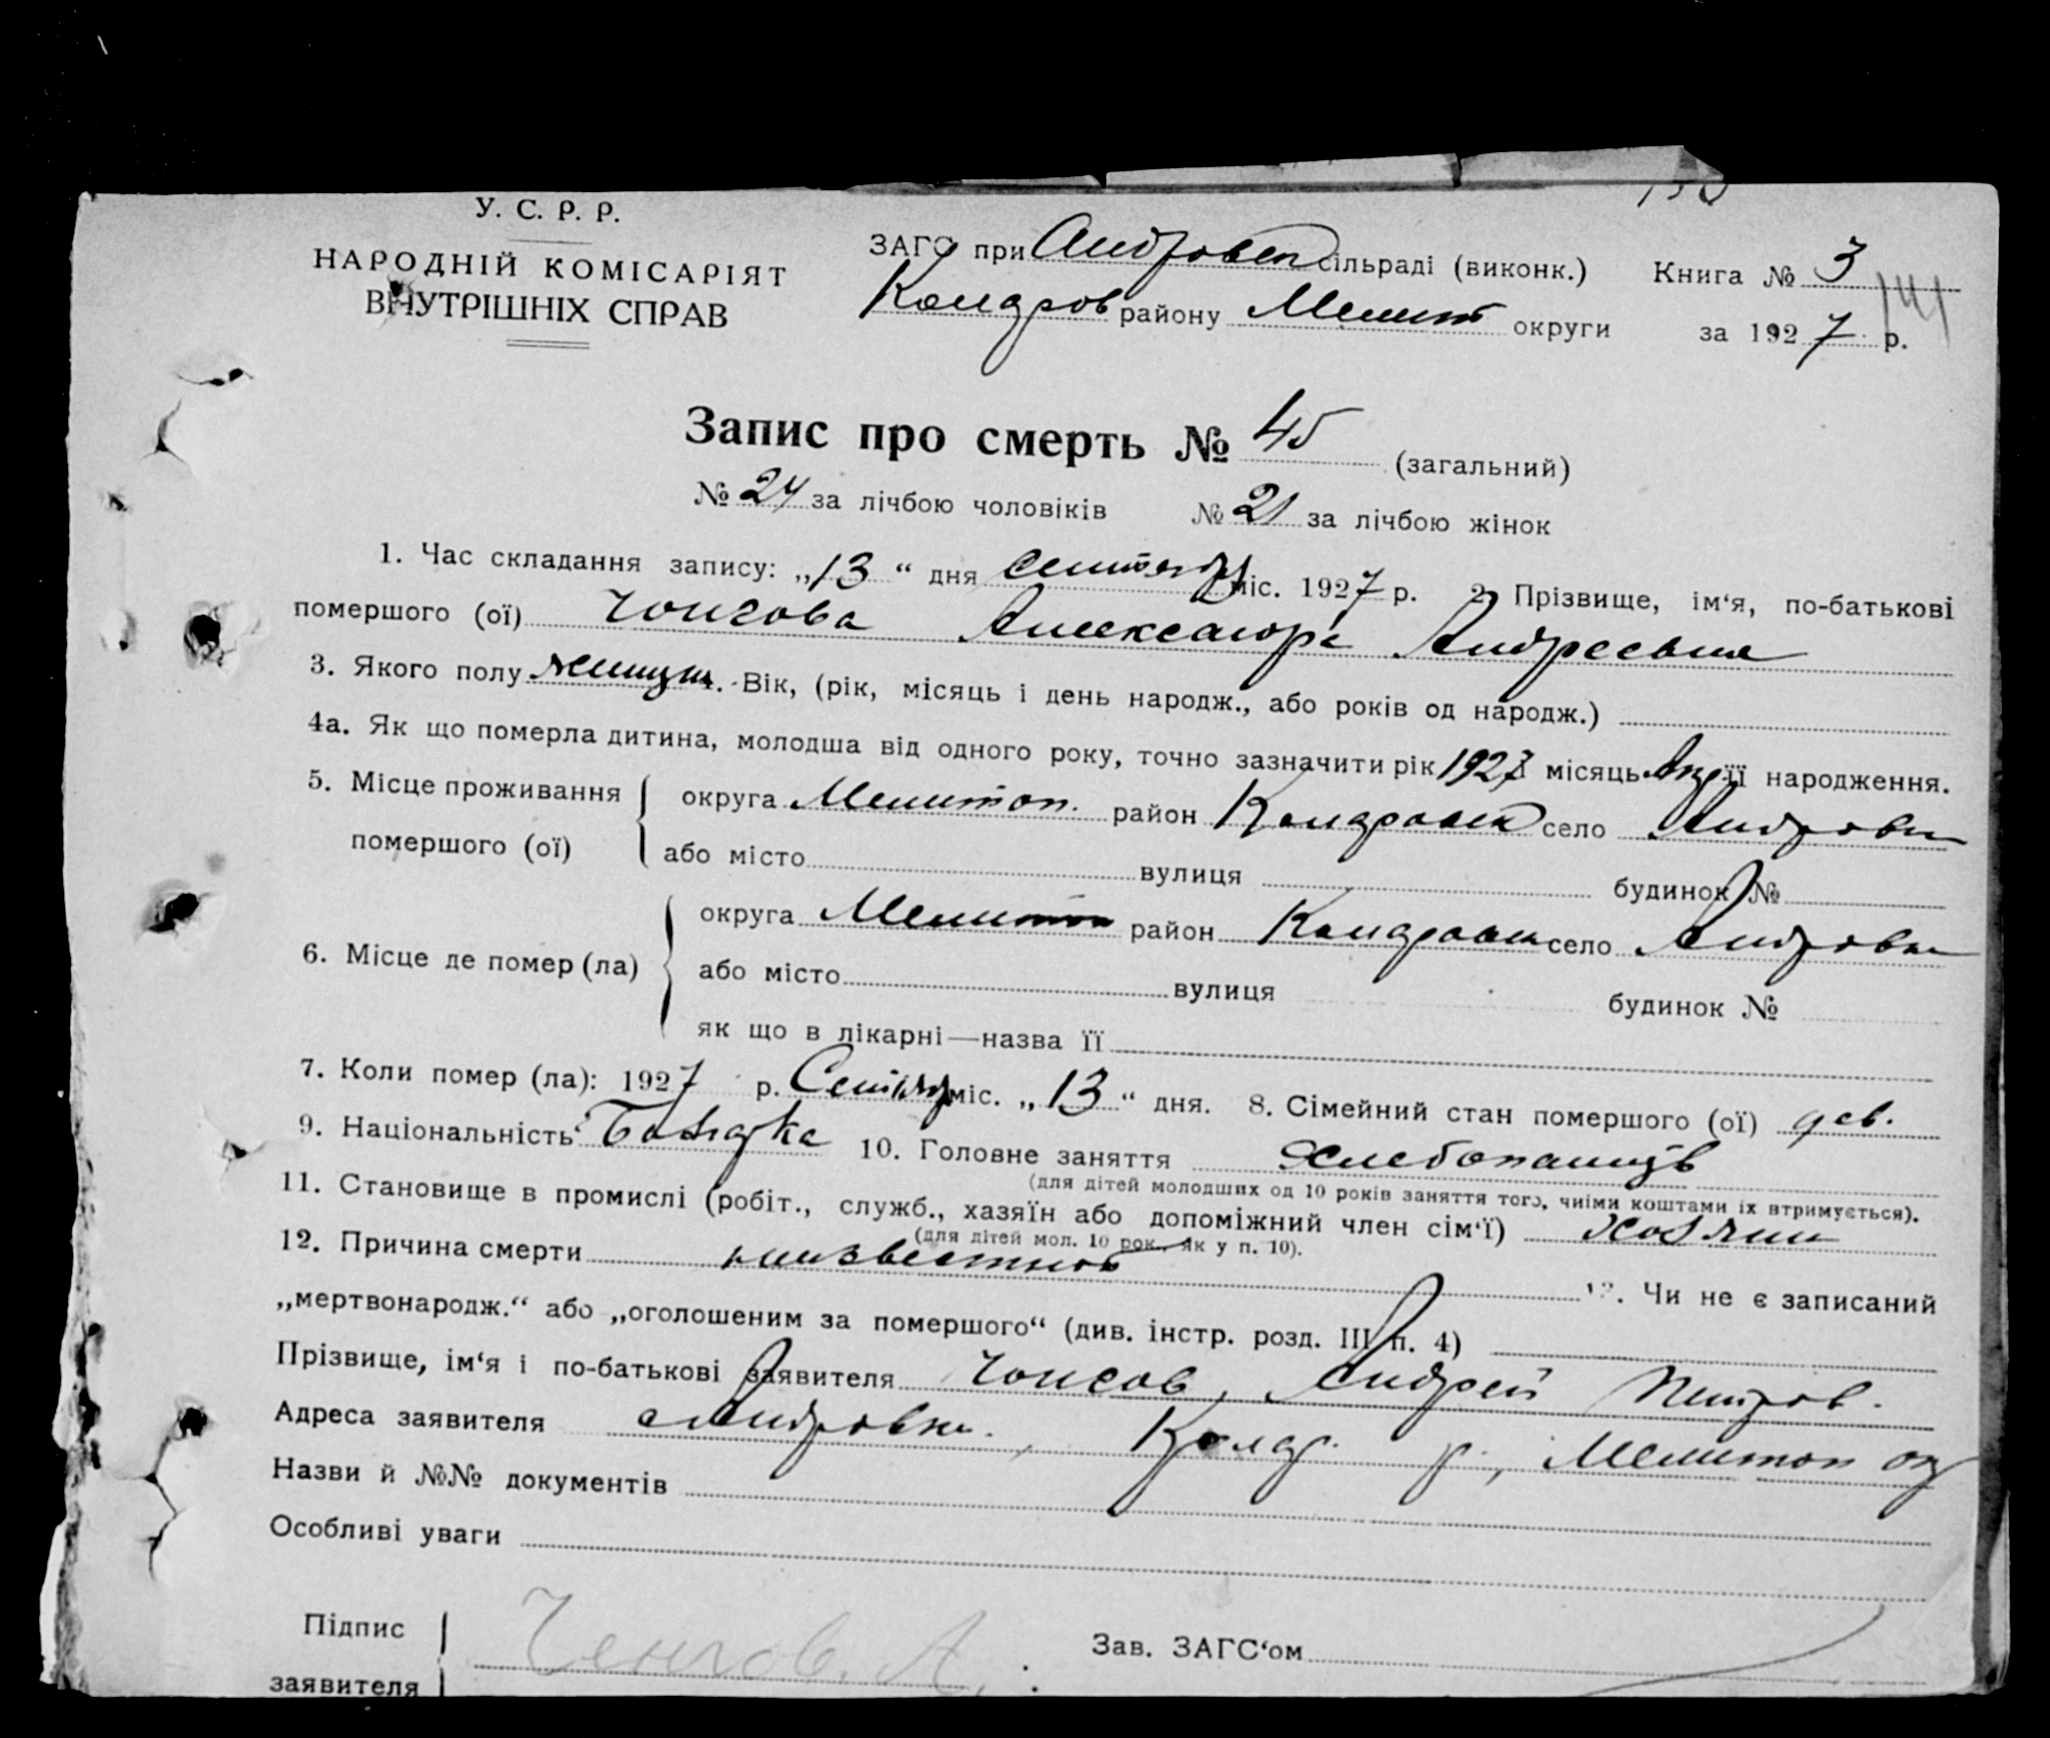 У. С. Р. Р.
НАРОДНІЙ КОМІСАРІЯТ
ВНУТРІШНІХ СПРАВ
ЗАГС при Андровск сільраді (виконк.) Книга № 3
району Мелит округи за 1927 р.
141
Запис про смерть № 45 (загальний)
№ 24 за лічбою чоловіків № 21 за лічбою жінок
1. Час складання запису: „13“ дня сентября міс. 1927 р. 2. Прізвище, ім‘я, по-батькові
помершого (ої) Чонгова Александра Андреевна
3. Якого полу женщин. Вік, (рік, місяць і день народж., або років од народж.)
4а. Як що померла дитина, молодша від одного року, точно зазначити рік 1927 місяць її народження.
5. Місце проживання помершого (ої) округа Мелитоп. район село Андровка
або місто вулиця будинок №
6. Місце де помер (ла) округа Мелитоп район село Андровка
або місто вулиця будинок №
як що в лікарні—назва її
7. Коли помер (ла): 1927 р. Сентября міс. „13“ дня. 8. Сімейний стан помершого (ої) дев.
9. Національність Болгарка 10. Головне заняття
(для дітей молодших од 10 років заняття того, чиїми коштами їх втримується).
11. Становище в промислі (робіт., служб., хазяїн або допоміжний член сім‘ї) хозяин
(для дітей мол. 10 рок. як у п. 10).
12. Причина смерти неизвестной 13. Чи не є записаний
„мертвонародж.“ або „оголошеним за помершого“ (див. інстр. розд. III п. 4)
Прізвище, ім‘я і по-батькові заявителя Чонгов, Андрей Петров.
Адреса заявителя с Андровка. р, Мелитоп ок
Назви й №№ документів
Особливі уваги
Підпис заявителя Ченгов. А. Зав. ЗАГС‘ом